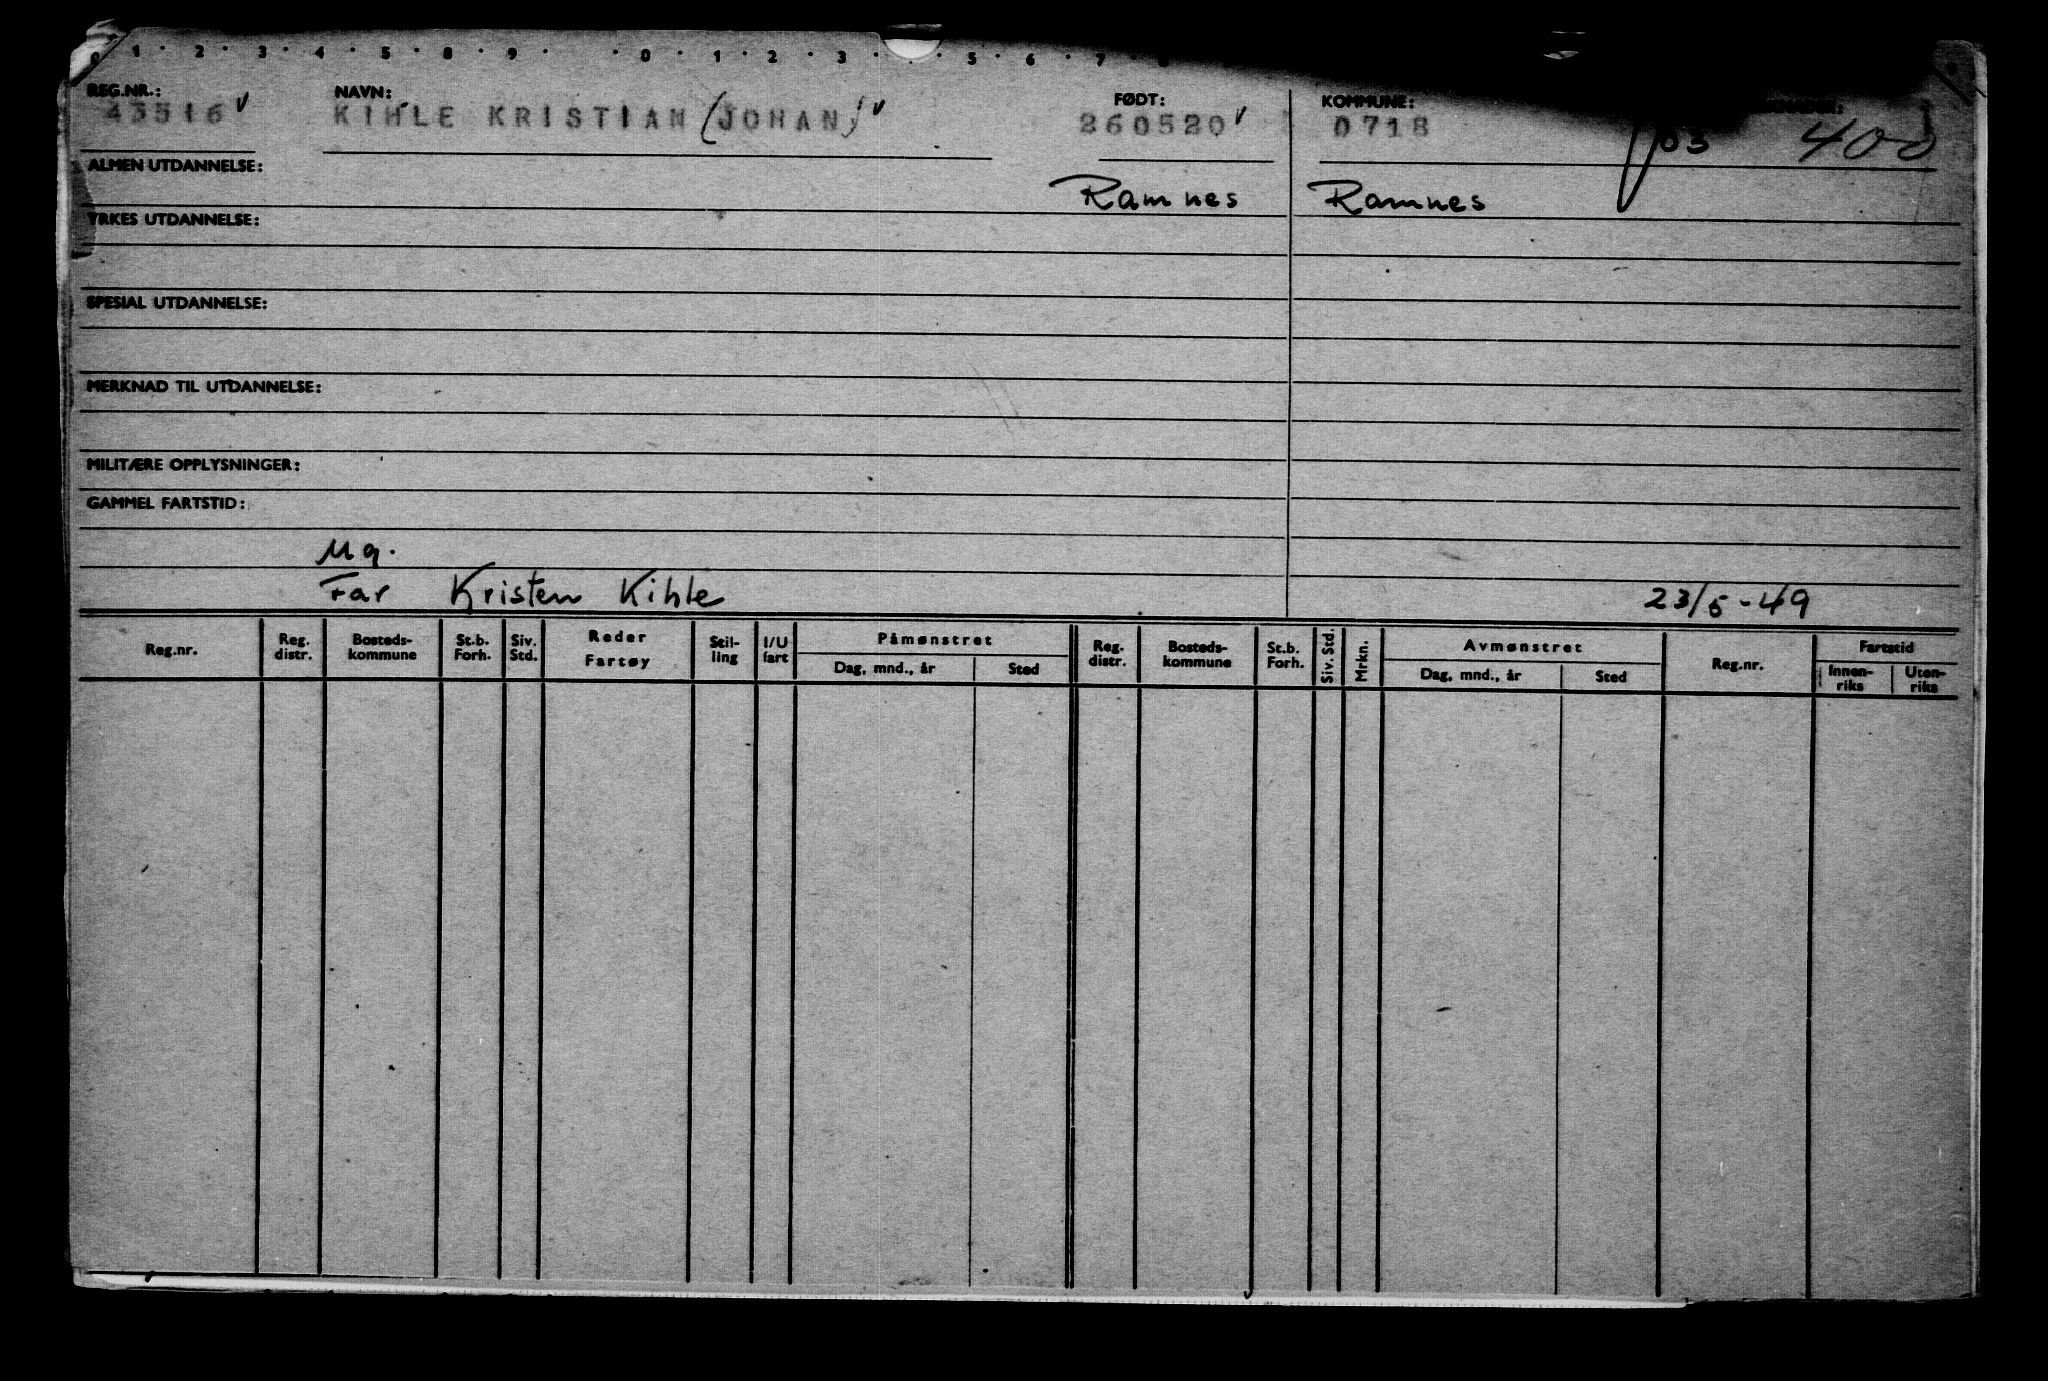 0 1 · 2 · 3 · 4 · 5 · 8 · 9 · · 0 · 1 · 2 · 3 · · 5 · 6 · 7 ·
REG.NR.: NAVN: FØDT: KOMMUNE:
43516 KIHLE KRISTIAN (JOHAN) 260520 0718 400
ALMEN UTDANNELSE:
Ramnes Ramnes
YRKES UTDANNELSE:
SPESIAL UTDANNELSE:
MERKNAD TIL UTDANNELSE:
MILITÆRE OPPLYSNINGER:
GAMMEL FARTSTID:
Ug.
Far Kristen Kihle 23/5-49
Reg.nr. Reg. distr. Bosteds-kommune St.b. Forh. Siv. Std. Reder Fartøy Stil-ling I/U fart Påmønstret Dag, mnd., år Sted Reg. distr. Bosteds-kommune St.b. Forh. Siv. Std. Mrkn. Avmønstret Dag, mnd., år Sted Reg.nr. Fartstid Innen-riks Uten-riks